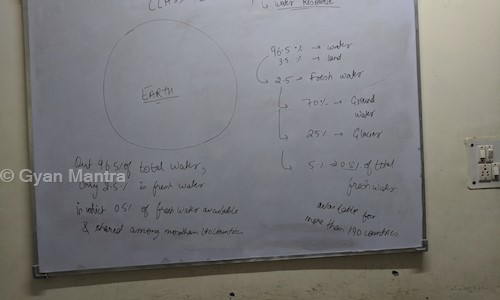 CLASS
↳ WATER RESOURCE
96.5% → water
3.5% → land
↳ 2.5 → Fresh water
↳ 70% → Ground water
↳ 25% → Glacier
↳ 5% → 0.5% of total fresh water
available for
more than 190 countries
EARTH
Out 96.5% of total water,
only 2.5% is fresh water
in which 0.5% of fresh water available
& shared among more than 190 countries
© Gyan Mantra